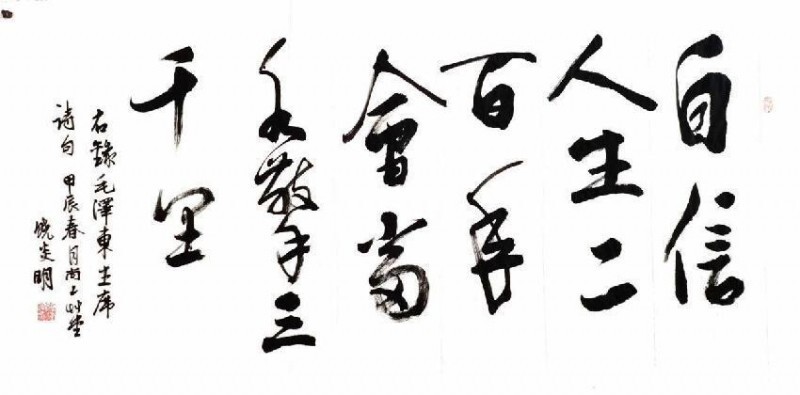 自信
人生二
百年
會當
水擊三
千里
右錄毛澤東主席
詩句 甲辰春月
炎明